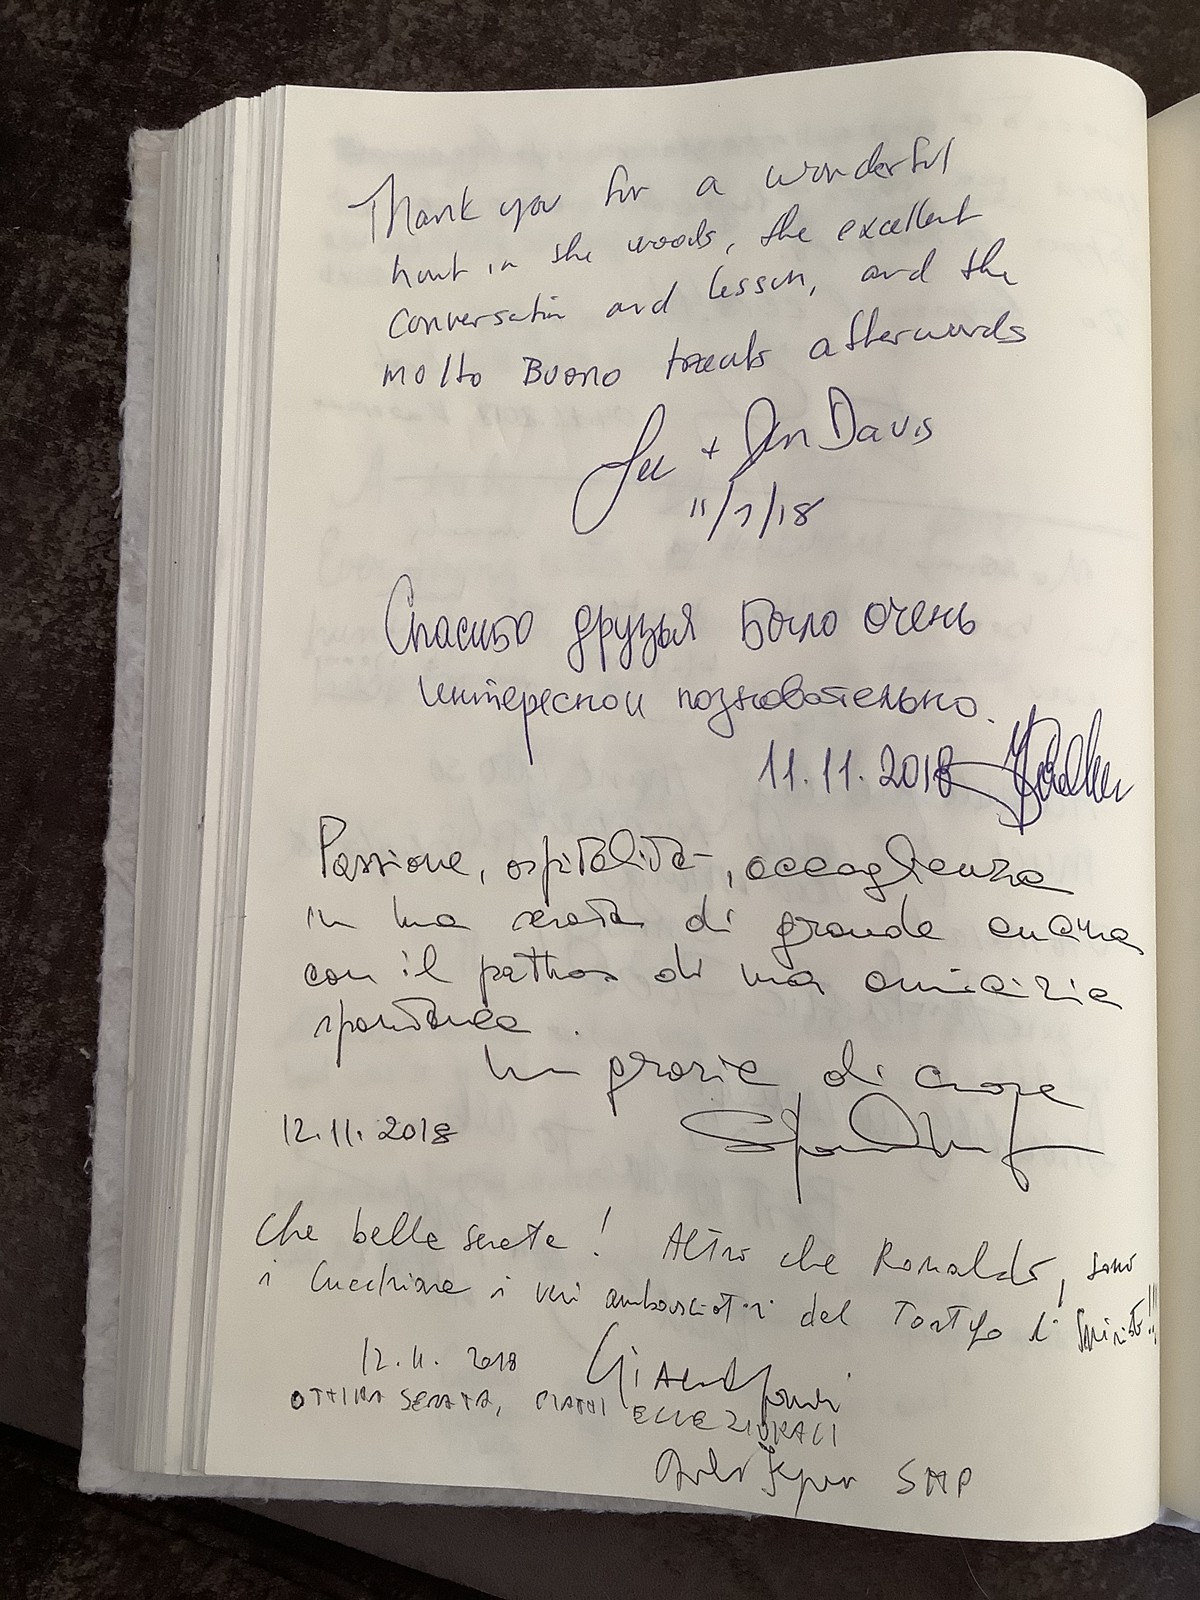 Thank you for a wonderful
hunt in the woods, the excellent
conversation and lesson, and the
molto Buono treats afterwards
+ Davis
11/7/18
Спасибо друзья Было очень
интересно и познавательно.
11.11.2018
Passione, ospitalità, accoglienza
in una serata di grande cucina
con il pathos di una amicizia
spontanea.
Un grazie di cuore
12.11.2018
Che belle serate! Altro che Ronaldo, sono
i Cucchiare i veri ambasciatori del Tartufo di
12.11.2018
OTTIMA SERATA, PIATTI ECCEZIONALI